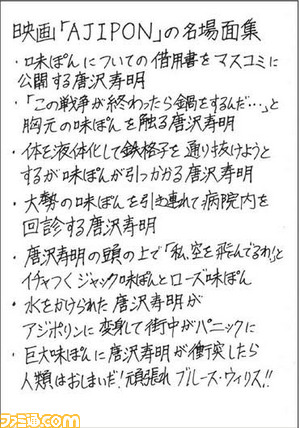 映画「AJIPON」の名場面集
・味ぽんについての借用書をマスコミに
公開する唐沢寿明
・「この戦争が終わったら鍋をするんだ…」と
胸元の味ぽんを触る唐沢寿明
・体を液体化して鉄格子を通り抜けようと
するが味ぽんが引っかかる唐沢寿明
・大勢の味ぽんを引き連れて病院内を
回診する唐沢寿明
・唐沢寿明の頭の上で「私、空を飛んでるわ!」と
イチャつくジャック味ぽんとローズ味ぽん
・水をかけられた唐沢寿明が
アジポリンに変身して街中がパニックに
・巨大味ぽんに唐沢寿明が衝突したら
人類はおしまいだ!頑張れブルース・ウィリス!!
ファミ通.com